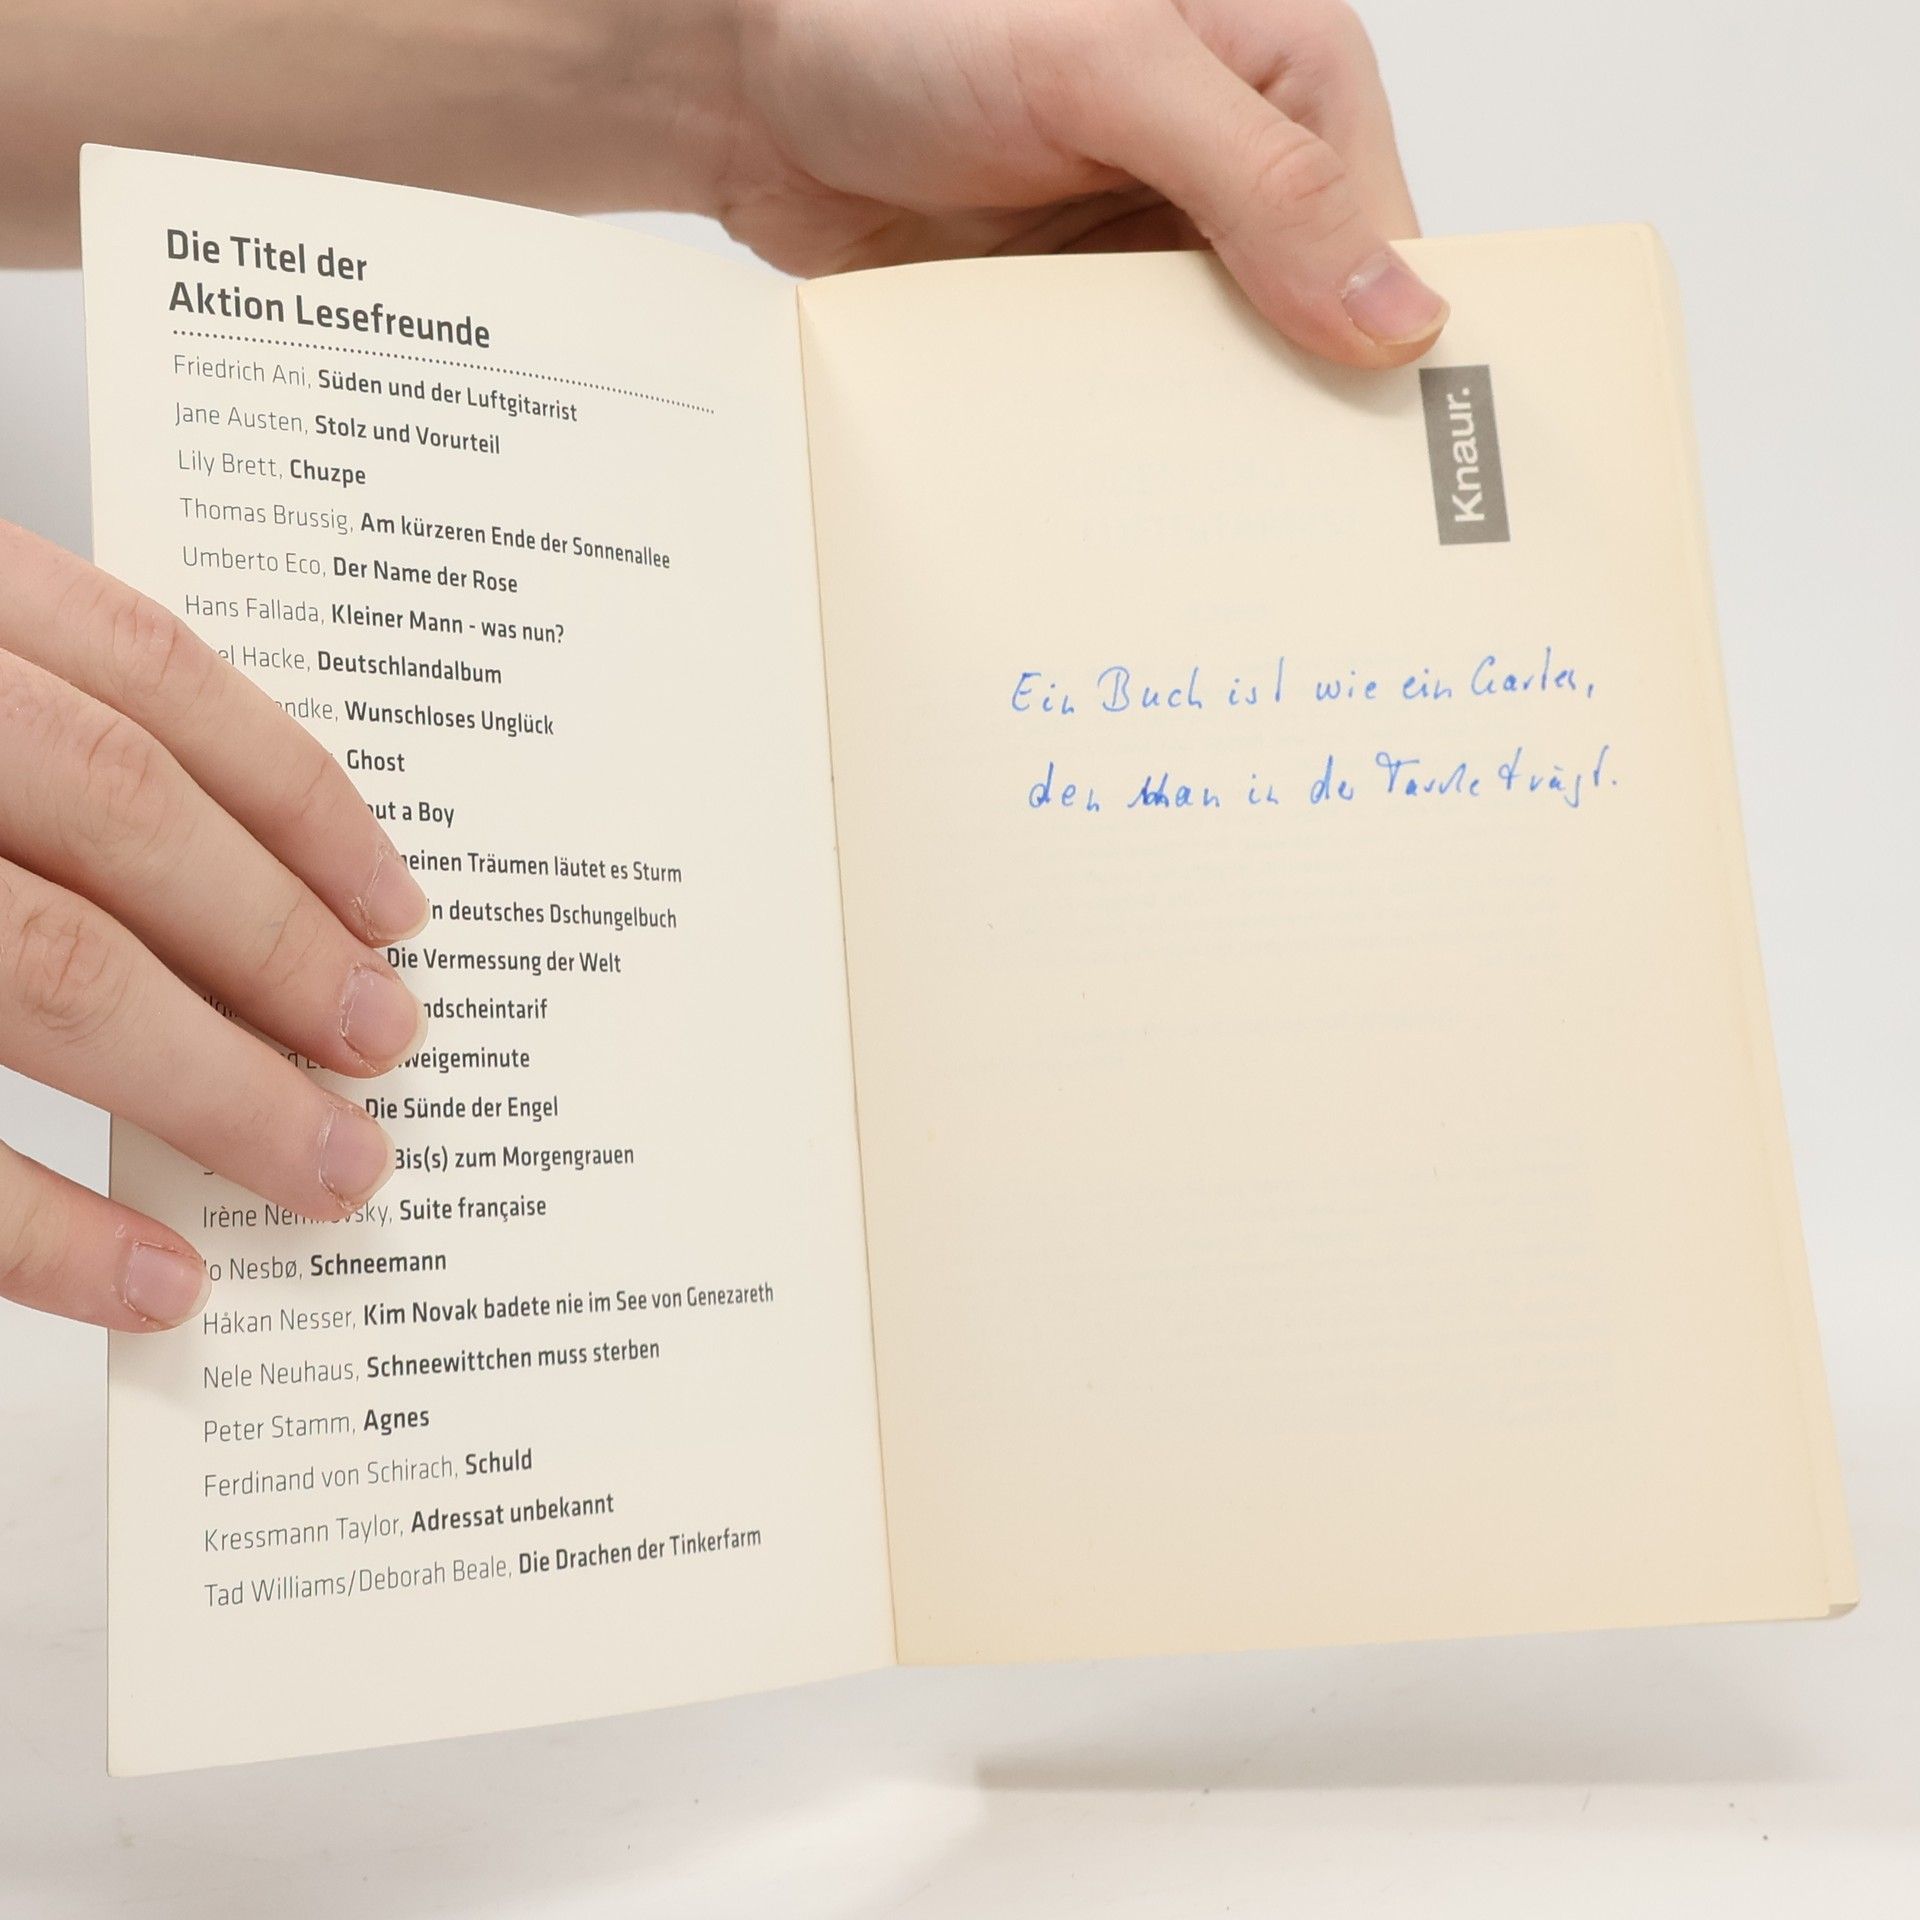 Die Titel der
Aktion Lesefreunde
Friedrich Ani, Süden und der Luftgitarrist
Jane Austen, Stolz und Vorurteil
Lily Brett, Chuzpe
Thomas Brussig, Am kürzeren Ende der Sonnenallee
Umberto Eco, Der Name der Rose
Hans Fallada, Kleiner Mann - was nun?
Hacke, Deutschlandalbum
Wunschloses Unglück
Ghost
a Boy
Träumen läutet es Sturm
deutsches Dschungelbuch
Die Vermessung der Welt
Die Sünde der Engel
Bis(s) zum Morgengrauen
Irène Suite française
Nesbø, Schneemann
Håkan Nesser, Kim Novak badete nie im See von Genezareth
Nele Neuhaus, Schneewittchen muss sterben
Peter Stamm, Agnes
Ferdinand von Schirach, Schuld
Kressmann Taylor, Adressat unbekannt
Tad Williams/Deborah Beale, Die Drachen der Tinkerfarm
Knaur.
Ein Buch ist wie ein Garten,
den man in der Tasche trägt.